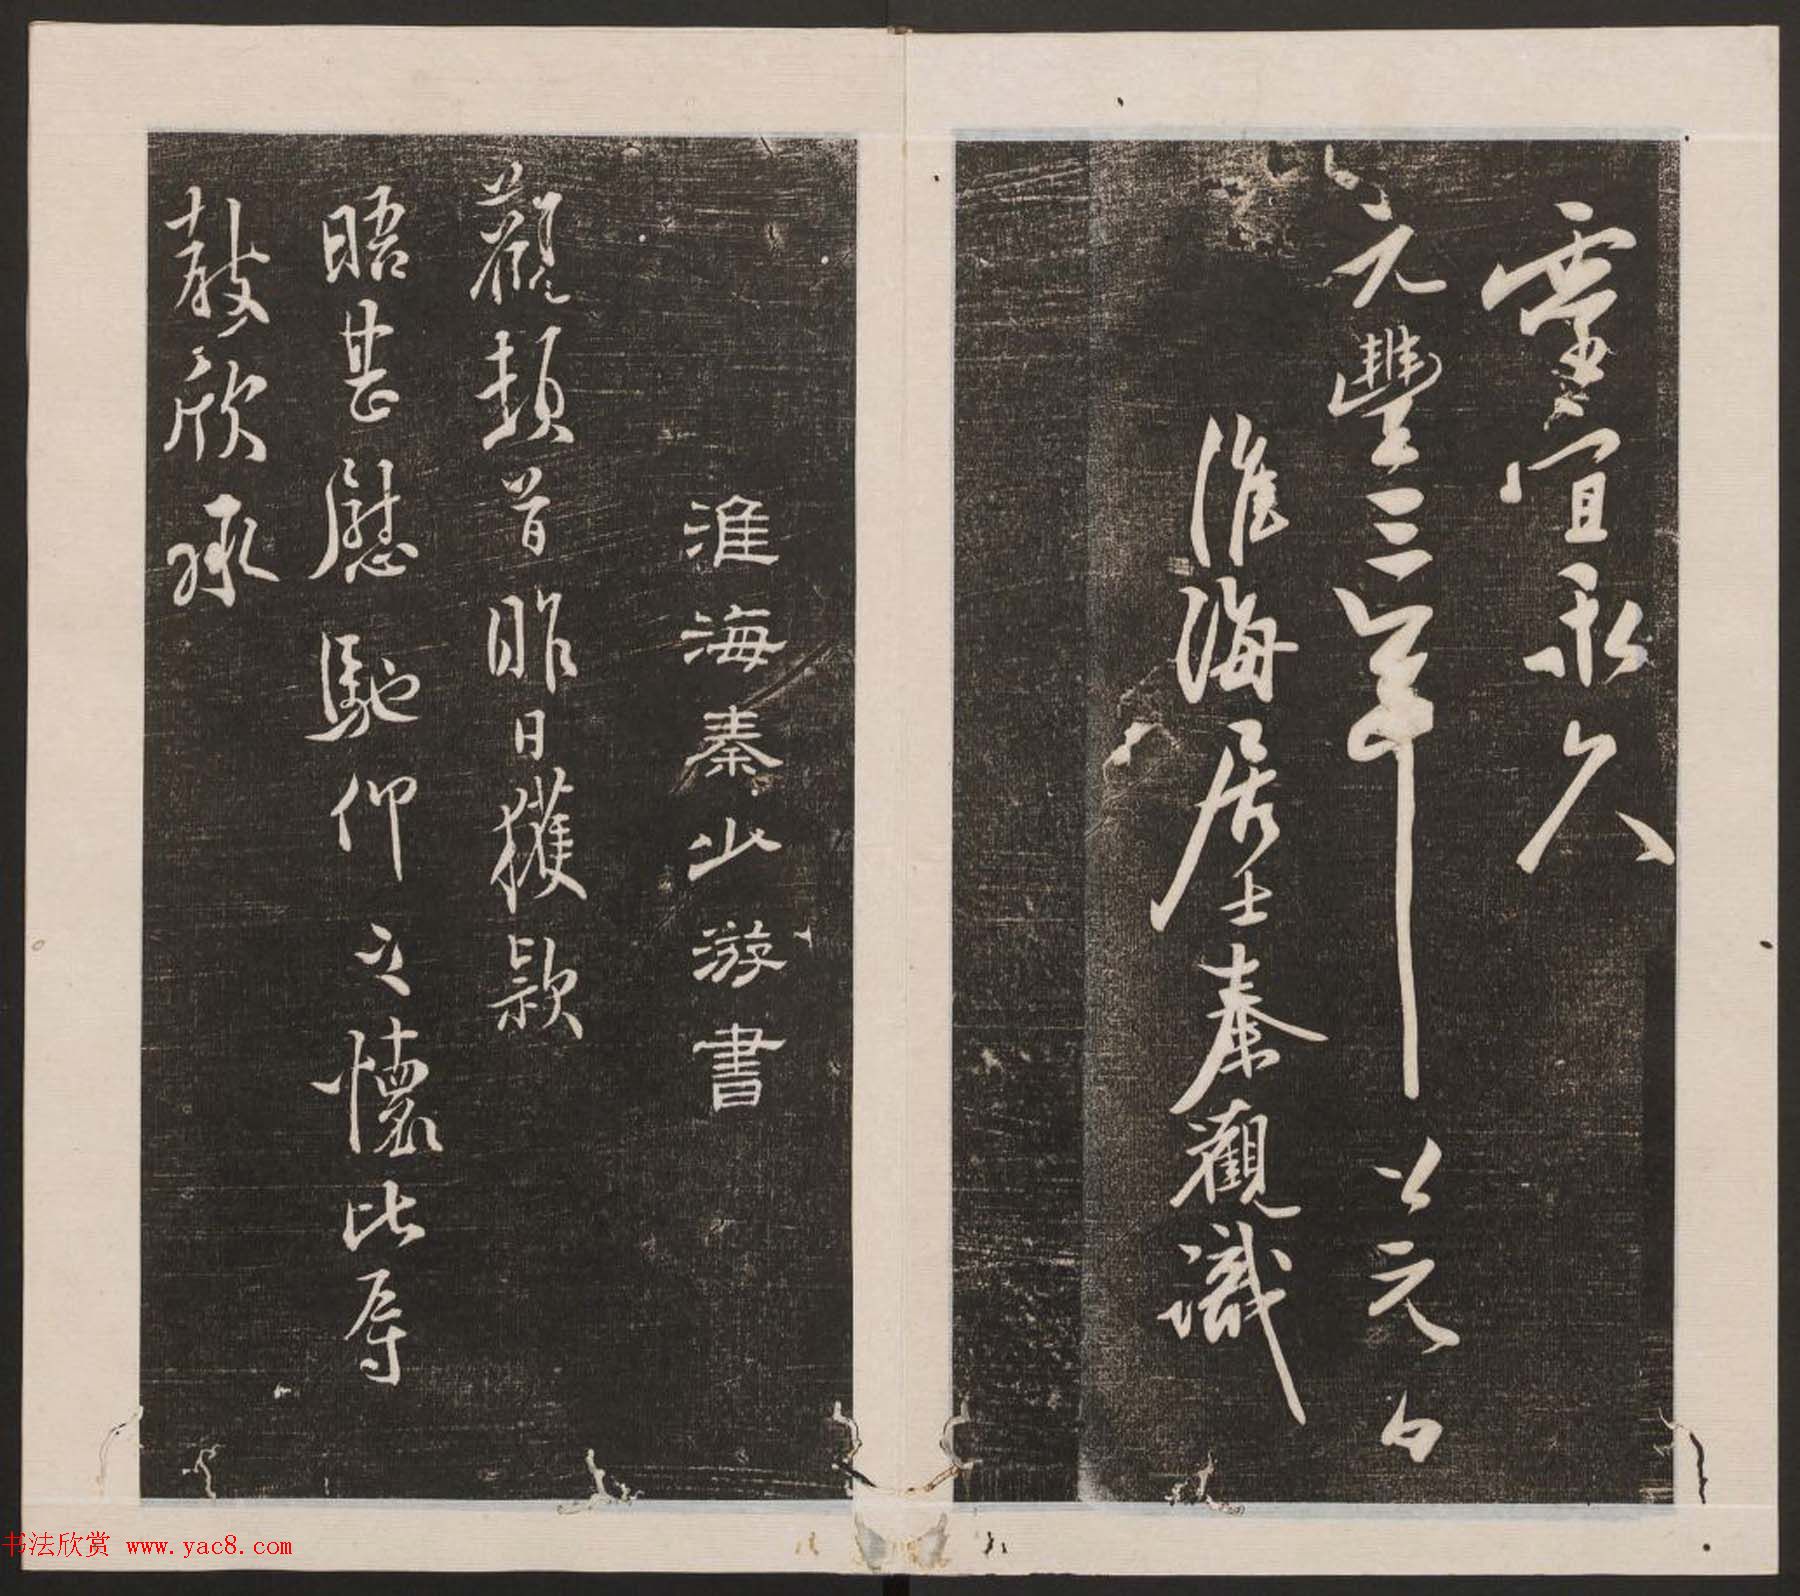 靈宜永久
元豐三年中元日
淮海居士秦觀識
淮海秦少游書
觀頓首昨日獲款
晤甚慰馳仰之懷此辱
教欣承
书法欣赏 www.yac8.com